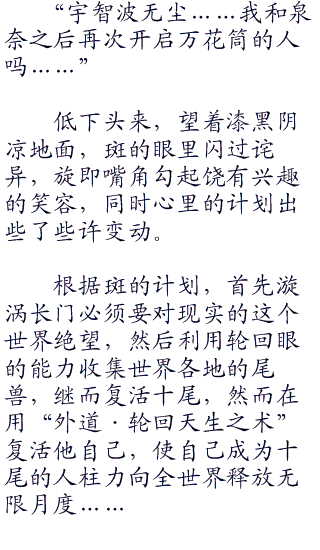 “宇智波无尘……我和泉
奈之后再次开启万花筒的人
吗……”
低下头来，望着漆黑阴
凉地面，斑的眼里闪过诧
异，旋即嘴角勾起饶有兴趣
的笑容，同时心里的计划出
些了些许变动。
根据斑的计划，首先漩
涡长门必须要对现实的这个
世界绝望，然后利用轮回眼
的能力收集世界各地的尾
兽，继而复活十尾，然而在
用“外道·轮回天生之术”
复活他自己，使自己成为十
尾的人柱力向全世界释放无
限月度……